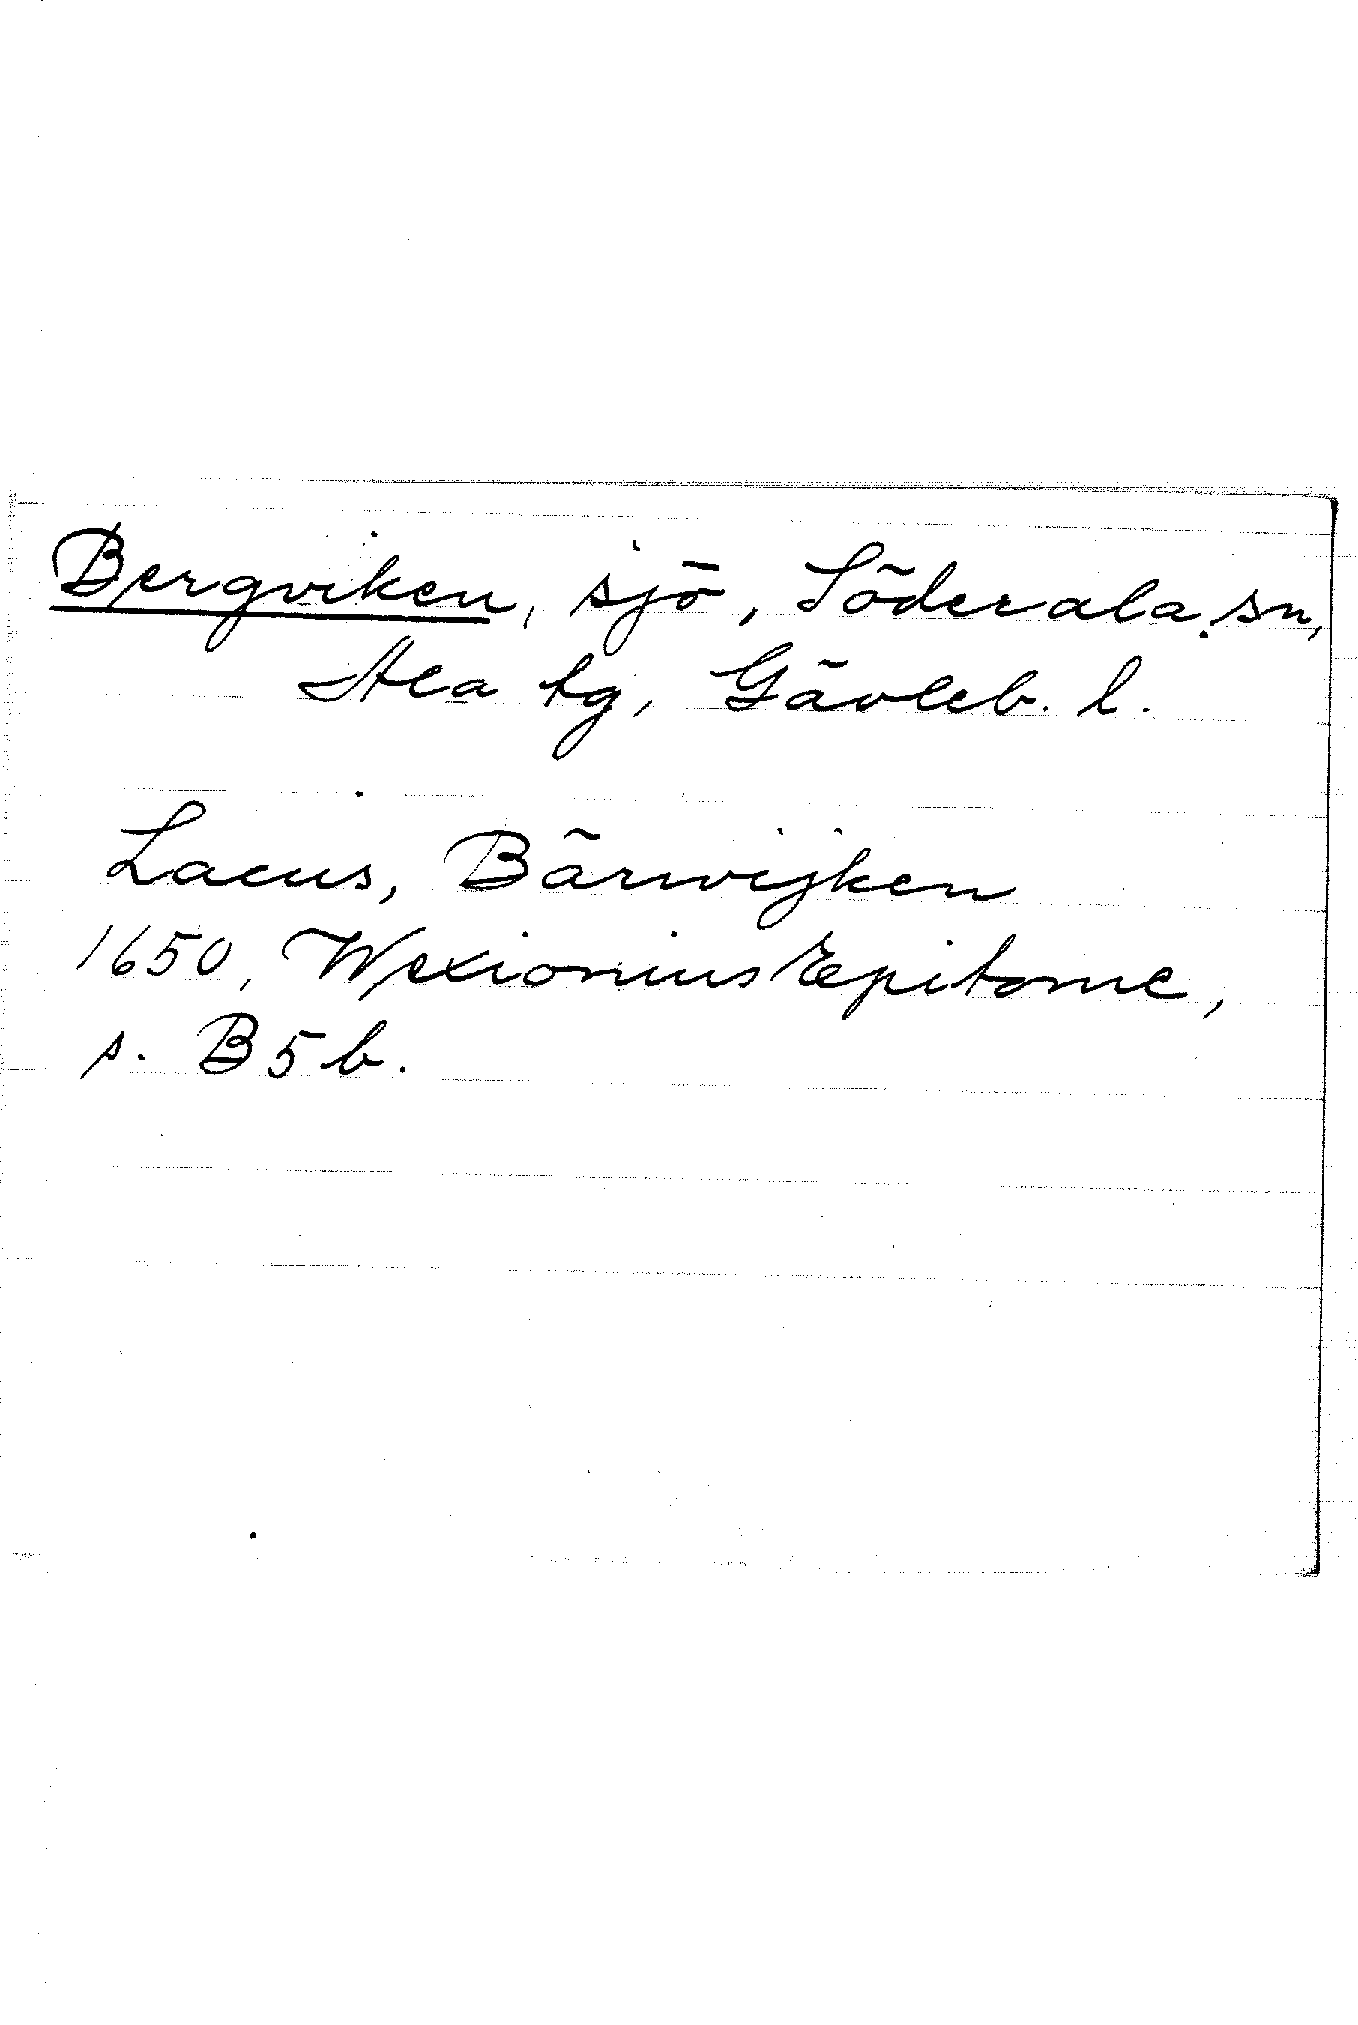 Bergviken, sjö, Söderala sn,
Ala tg, Gävleb. l.
Lacus, Bärwijken
1650, Wexionius Epitome,
s. B5b.